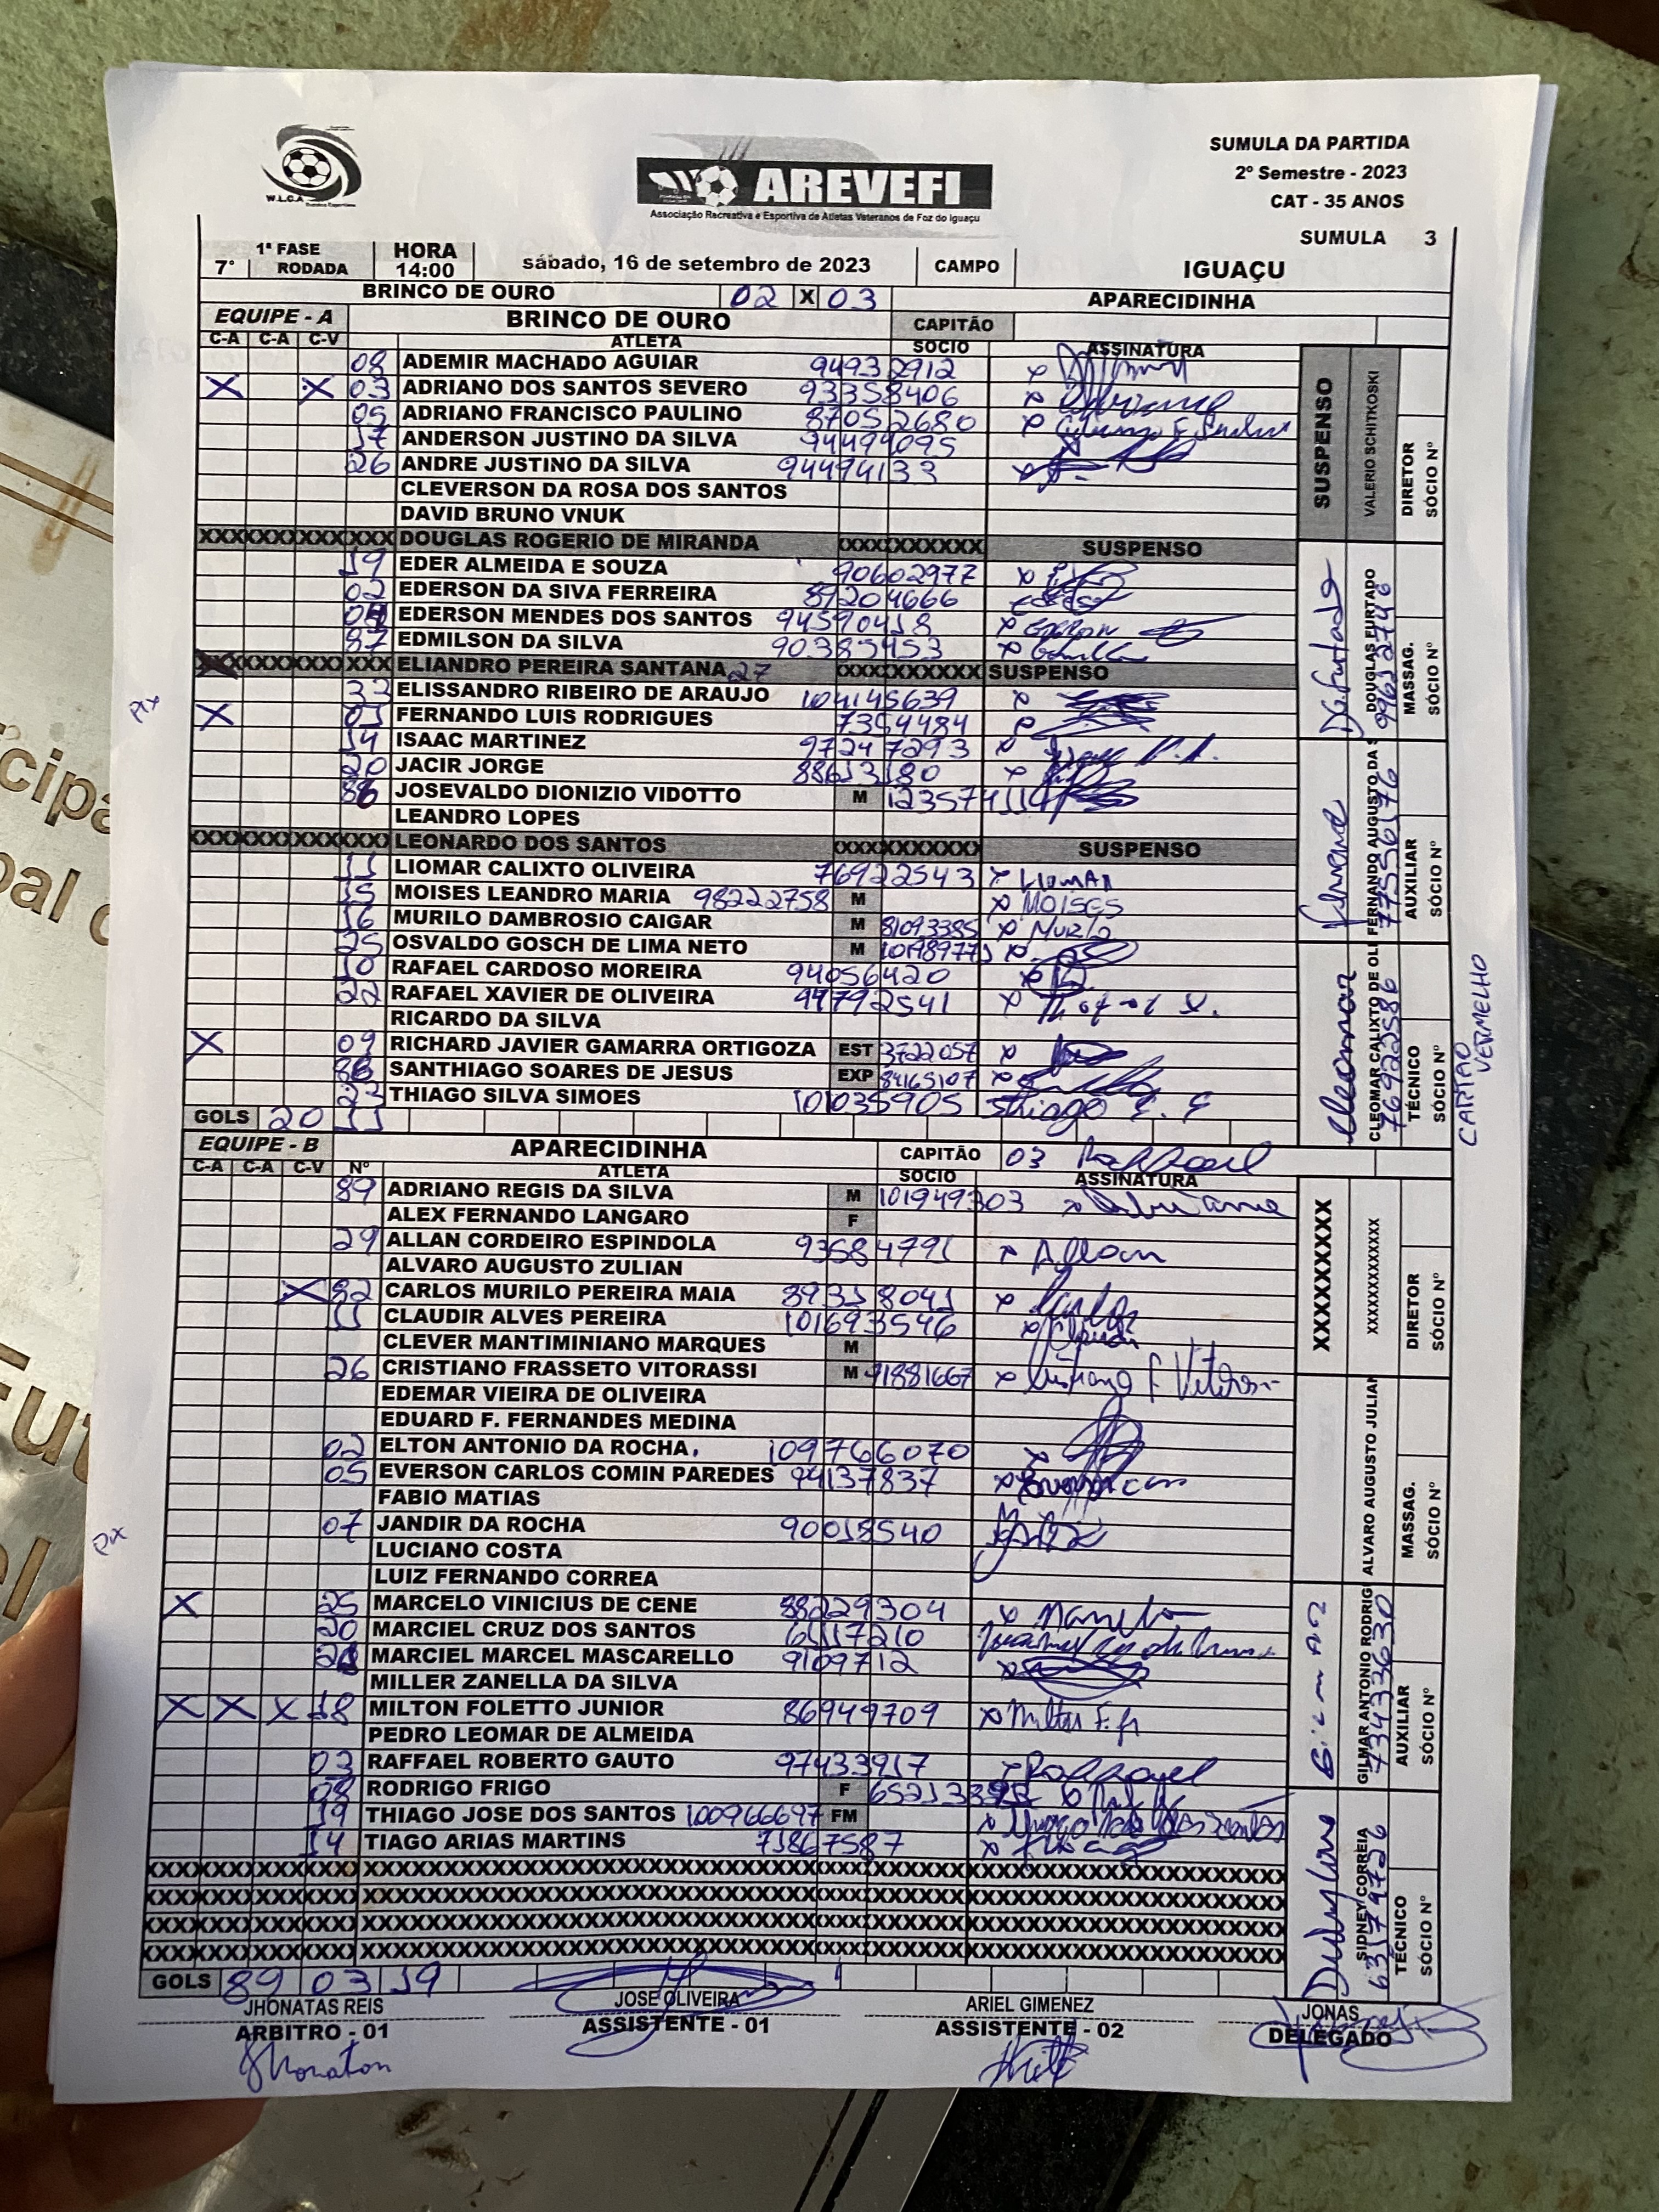 SUMULA DA PARTIDA
2º Semestre - 2023
CAT - 35 ANOS
W.L.C.A
AREVEFI
Associação Recreativa e Esportiva de Atletas Veteranos de Foz do Iguaçu
SUMULA 3
1ª FASE
7° RODADA
HORA
14:00
sábado, 16 de setembro de 2023
CAMPO
IGUAÇU
BRINCO DE OURO 02 X 03 APARECIDINHA
EQUIPE - A BRINCO DE OURO CAPITÃO
C-A C-A C-V ATLETA SOCIO ASSINATURA
08 ADEMIR MACHADO AGUIAR 94932912
X X 03 ADRIANO DOS SANTOS SEVERO 93358406
05 ADRIANO FRANCISCO PAULINO 87052680
17 ANDERSON JUSTINO DA SILVA 94494095
26 ANDRE JUSTINO DA SILVA 94494133
CLEVERSON DA ROSA DOS SANTOS
DAVID BRUNO VNUK
XXXXXXXXXXXXXX DOUGLAS ROGERIO DE MIRANDA XXXXXXXXXXX SUSPENSO
19 EDER ALMEIDA E SOUZA 90602977
02 EDERSON DA SIVA FERREIRA 87204666
EDERSON MENDES DOS SANTOS 94590418
87 EDMILSON DA SILVA 90385453
XXXXXXXXXXXXXX ELIANDRO PEREIRA SANTANA 27 XXXXXXXXXXX SUSPENSO
33 ELISSANDRO RIBEIRO DE ARAUJO 104145639
Pix
X 01 FERNANDO LUIS RODRIGUES 7354484
14 ISAAC MARTINEZ 97247293
20 JACIR JORGE 88613180
JOSEVALDO DIONIZIO VIDOTTO M
LEANDRO LOPES
XXXXXXXXXXXXXX LEONARDO DOS SANTOS XXXXXXXXXXX SUSPENSO
11 LIOMAR CALIXTO OLIVEIRA 76922543 x LIOMAR
15 MOISES LEANDRO MARIA 98222758 M x MOISES
16 MURILO DAMBROSIO CAIGAR M 81093385 x MURILO
25 OSVALDO GOSCH DE LIMA NETO M
10 RAFAEL CARDOSO MOREIRA 94056420
22 RAFAEL XAVIER DE OLIVEIRA 97792541
RICARDO DA SILVA
X 09 RICHARD JAVIER GAMARRA ORTIGOZA EST 3722057
SANTHIAGO SOARES DE JESUS EXP 84165107
23 THIAGO SILVA SIMOES 101035905 Sthiago
GOLS 20 11
SUSPENSO
VALERIO SCHITKOSKI
DIRETOR
SÓCIO Nº
DOUGLAS FURTADO
MASSAG.
SÓCIO Nº
FERNANDO AUGUSTO DA S
AUXILIAR
SÓCIO Nº
Cleomar
CLEOMAR CALIXTO DE OLI
76922586
TÉCNICO
SÓCIO Nº
CARTÃO
VERMELHO
EQUIPE - B APARECIDINHA CAPITÃO 03 Raffael
C-A C-A C-V Nº ATLETA SOCIO ASSINATURA
89 ADRIANO REGIS DA SILVA M 101949303
ALEX FERNANDO LANGARO F
29 ALLAN CORDEIRO ESPINDOLA 93584791 Allan
ALVARO AUGUSTO ZULIAN
X 82 CARLOS MURILO PEREIRA MAIA 89318041 x Carlos
11 CLAUDIR ALVES PEREIRA 101693546 x Claudir
CLEVER MANTIMINIANO MARQUES M
26 CRISTIANO FRASSETO VITORASSI M 71881667 x Cristiano F Vitorassi
EDEMAR VIEIRA DE OLIVEIRA
EDUARD F. FERNANDES MEDINA
02 ELTON ANTONIO DA ROCHA. 109766070
05 EVERSON CARLOS COMIN PAREDES 94137837
FABIO MATIAS
Pix
07 JANDIR DA ROCHA 90018540
LUCIANO COSTA
LUIZ FERNANDO CORREA
X 25 MARCELO VINICIUS DE CENE 88229304 x Marcelo
20 MARCIEL CRUZ DOS SANTOS 65117210
MARCIEL MARCEL MASCARELLO 9109712
MILLER ZANELLA DA SILVA
X X X 18 MILTON FOLETTO JUNIOR 86949709 x Milton F. Jr
PEDRO LEOMAR DE ALMEIDA
03 RAFFAEL ROBERTO GAUTO 97433917 Raffael
08 RODRIGO FRIGO F
19 THIAGO JOSE DOS SANTOS 100966697 FM x Thiago José dos Santos
14 TIAGO ARIAS MARTINS 73867587
GOLS 89 03 19
XXXXXXXXXX
XXXXXXXXXXXX
DIRETOR
SÓCIO Nº
ALVARO AUGUSTO JULIAN
MASSAG.
SÓCIO Nº
GILMAR ANTONIO RODRIG
73433630
AUXILIAR
SÓCIO Nº
SIDNEY CORREIA
63179756
TÉCNICO
SÓCIO Nº
JHONATAS REIS
ARBITRO - 01
Jhonatan
JOSE OLIVEIRA
ASSISTENTE - 01
ARIEL GIMENEZ
ASSISTENTE - 02
JONAS
DELEGADO